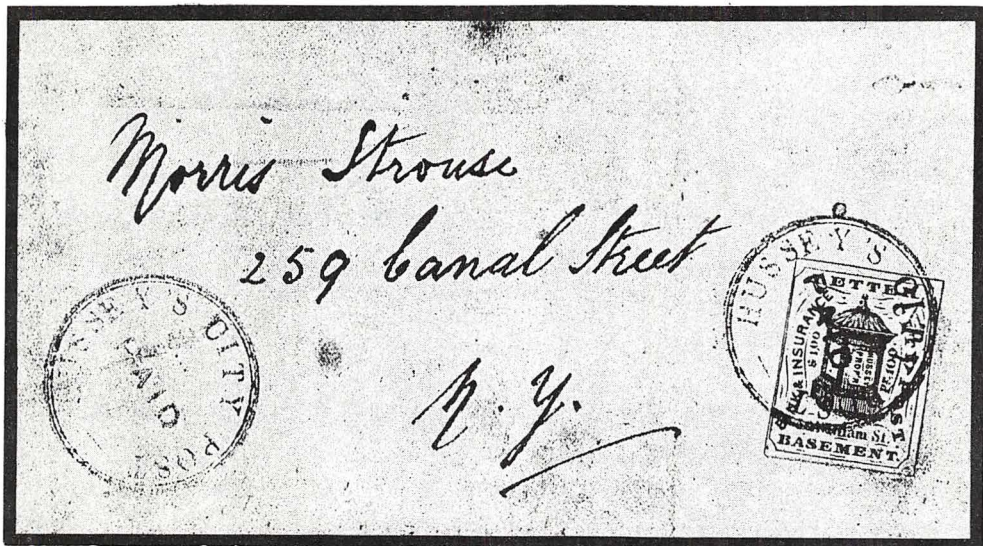 Morris Strouse
259 Canal Street
N. Y.
HUSSEY'S CITY POST
PAID
HUSSEY'S
LETTER
BANK & INSURANCE
$1.00
PR 100
BASEMENT.